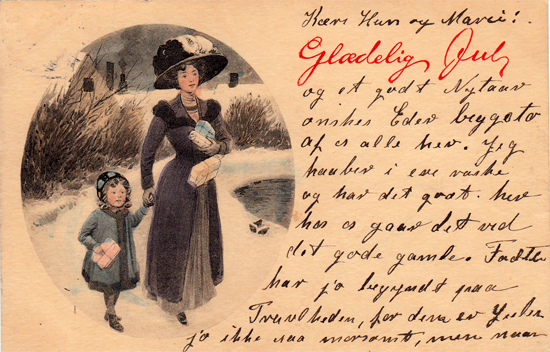 Kære Hun og Marie!
Glædelig Jul
og et godt Nytaar
ønskes Eder begge to
af os alle her. Jeg
haaber i ere raske
og har det godt. her
hos os gaar det ved
det gode gamle.
har jo begyndt paa
Travlheden, for dem er
jo ikke saa morsomt, men naar